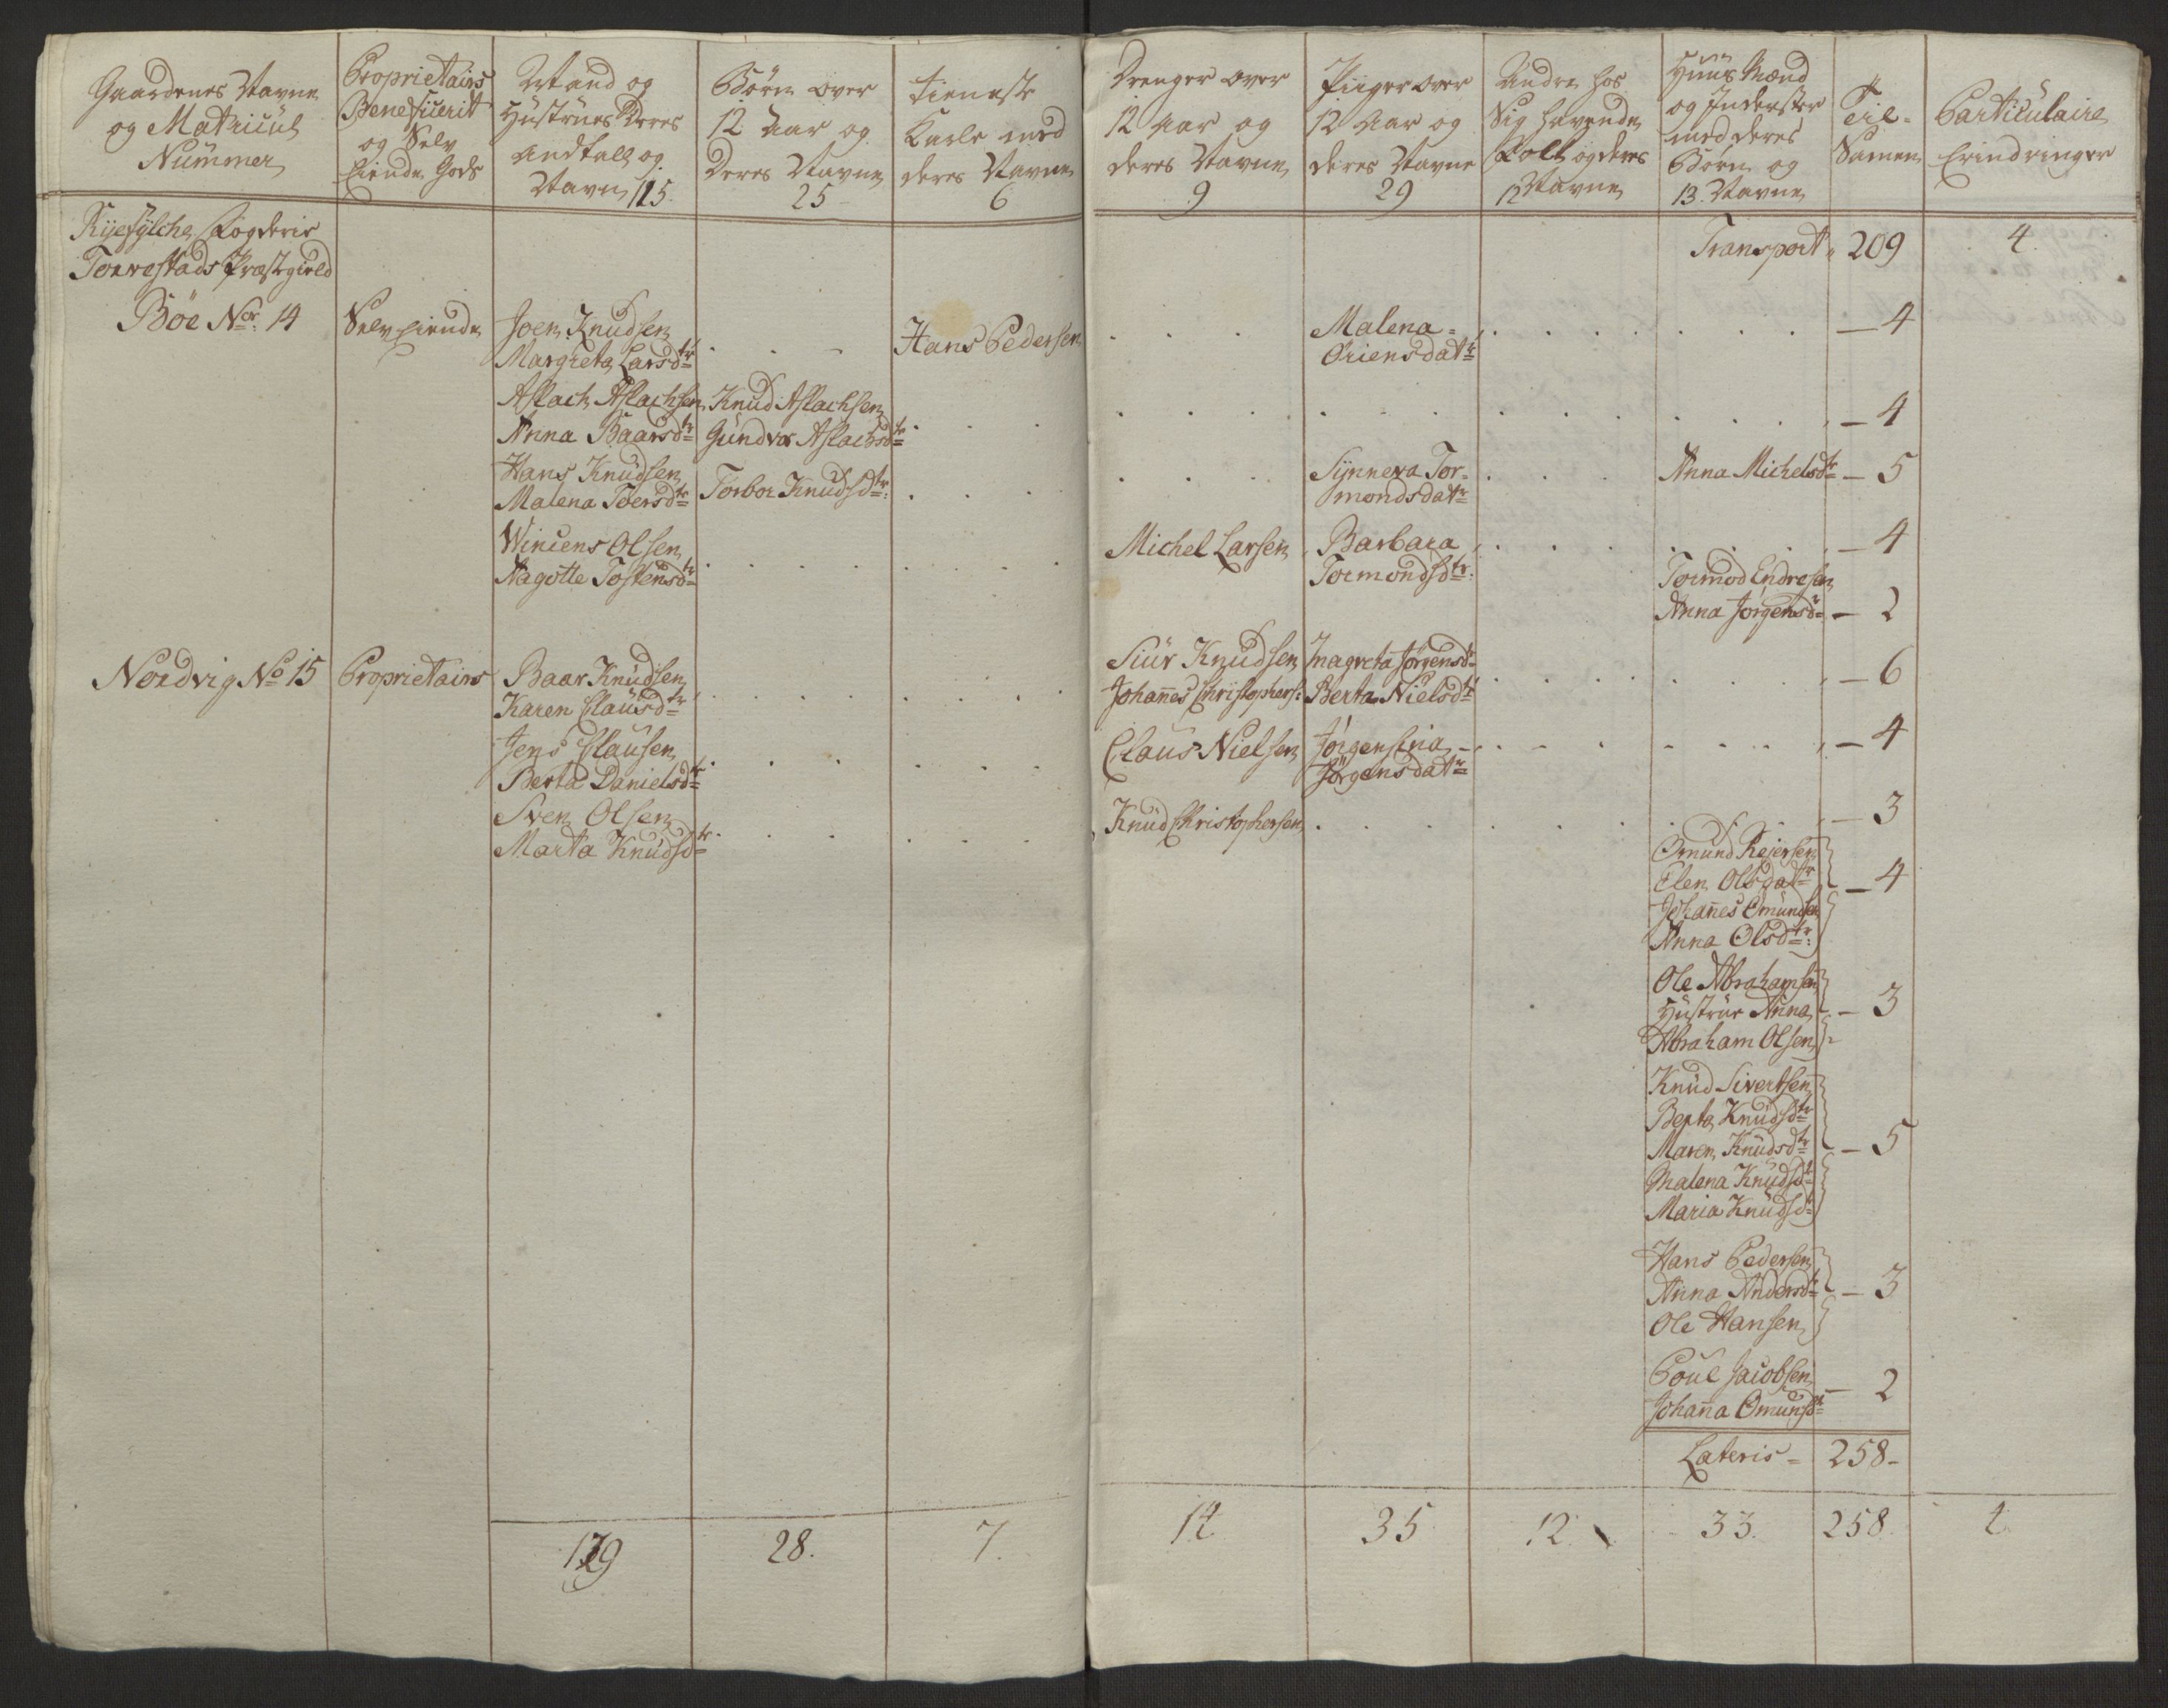 Gaardenes Navne
og Matricül
Nümmer
Proprietairs
Beneficerit
og Selv
Eiende Gods
Mand og
Hüstrües Deres
Andtall og
Navn 115.
Börn over
12 Aar og
Deres Navne
25
Tieneste
Karle med
deres Navne
6
Drenger over
12 Aar og
deres Navne
9
Piiger over
12 Aar og
deres Navne
29
Andre hos
Sig havende
Folk og deres
12 Navne
Hüüs Mænd
og Inderster
med deres
Börn og
13. Navne
Til-
Samen
Particülaire
Erindringer
Ryefylche Fogderie
Torvestads Præstgield
Transport 209
4.
Böe No: 14
Selv Eiende
Joen Knudsen
Margreta Larsdtr
Hans Pedersen
Malena
Oriensdatr
4
Aslach Aslachsen
Anna Baarsdtr
Knud Aslachsen
Gündvor Aslachsdtr
4
Hans Knüdsen
Malena Toersdtr
Torbor Knudsdtr.
Synneva Tor-
mondsdatr
Anna Michelsdtr
5
Winsens Olsen
Aagotte Tostensdtr
Michel Larsen
Barbara
Tormondsdtr.
4
Tormod Endresen
Anna Jörgensdr
2
Nordvig No 15
Proprietairs
Baar Knüdsen
Karen Clausdtr
Siür Knudsen
Johannes Christophers:
Inagreta Jörgensdr
Berta Nielsdtr
6
Jens Clausen
Berta Danielsdtr
Claus Nielsen
Jörgensina
Jörgensdatr
4
Sven Olsen
Marta Knudsdtr
Knüd Christophersen
3
Omund Reiersen
Elen Olsdatr
Johannes Omundsen
Anna Olsdtr.
4
Ole Abrahamsen
Hüstrüe Anna
Abraham Olsen
3
Knüd Sivertsen
Berta Knüdsdtr
Maren Knüdsdtr
Malena Knüdsdr
Maria Knüdsdr
5
Hans Pedersen
Anna Andersdtr
Ole Hansen
3
Poül Jacobsen
Johanna Omunsdr
2
Lateris 258
129
28.
7.
14
35
12.
33.
258.
4